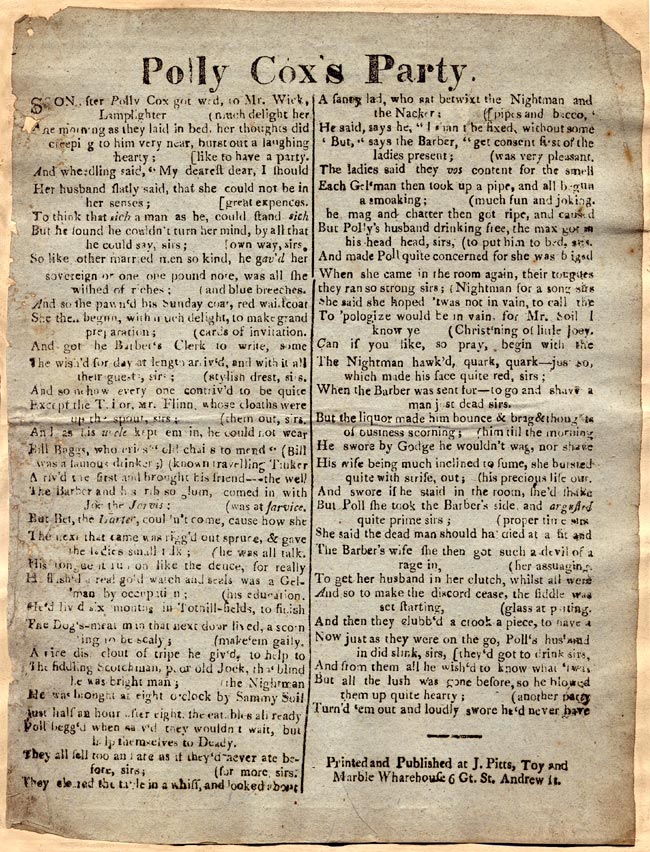 Polly Cox's Party.
SOON after Polly Cox got wed, to Mr. Wick,
Lamplighter (much delight her
One morning as they laid in bed, her thoughts did
creeping to him very near, burst out a laughing
hearty; [like to have a party.
And wheedling said, "My dearest dear, I should
Her husband flatly said, that she could not be in
her senses; [great expences.
To think that sich a man as he, could stand sich
But he found he couldn't turn her mind, by all that
he could say, sirs; (own way, sirs,
So like other married men so kind, he gav'd her
sovereign or one one pound note, was all she
wished of riches; (and blue breeches.
And so she pawn'd his Sunday coat, red waistcoat
She then begun, with much delight, to make grand
preparation; (cards of invitation.
And got he Barber's Clerk to write, some
The wish'd for day at length arriv'd, and with it all
their guests, sirs; (stylish drest, sirs.
And somehow every one contriv'd to be quite
Except the Tailor, Mr. Flinn, whose cloaths were
up the spout, sirs; (them out, sirs.
And as his uncle kept 'em in, he could not wear
Bill Baggs, who cries old chairs to mend" (Bill
was a famous drinker;) (known travelling Tinker
Arriv'd the first and brought his friend—the well
The Barber and his rib so glum, comed in with
Joe the Jarvis; (was at sarvice.
But Bet, the Darter, coul'n't come, cause how she
The next that came was rigg'd out spruce, & gave
the ladies small talk; (he was all talk.
His tongue it run on like the deuce, for really
He flash'd a real gold watch and seals was a Gel-
'man by occupation; (his education.
He'd liv'd six months in Tothill-fields, to finish
The Dog's-meat man that next door lived, a scorn
'ing to be scaly; (make'em gaily.
A nice dis clout of tripe he giv'd, to help to
The fiddling Scotchman, poor old Jock, tho' blind
he was bright man; (the Nightman
He was brought at eight o'clock by Sammy Soil
Just half an hour after eight, the eatables all ready
Poll begg'd when sarv'd they wouldn't wait, but
help themselves to Deady.
They all fell too and ate as if they'd never ate be-
fore, sirs; (for more, sirs.
They cleared the table in a whiff, and looked about
A saucy lad, who sat betwixt the Nightman and
the Nacker; ([pipes and bacco,'
He said, says he, "I can't be fixed, without some
'But," says the Barber, "get consent first of the
ladies present; (was very pleasant.
The ladies said they vos content for the smell
Each Gel'man then took up a pipe, and all begun
a smoaking; (much fun and joking.
he mag and chatter then got ripe, and caused
But Polly's husband drinking free, the max got in
his head head, sirs, (to put him to bed, sirs.
And made Poll quite concerned for she was obliged
When she came in the room again, their tongues
they ran so strong sirs; (Nightman for a song sirs
She said she hoped 'twas not in vain, to call the
To 'pologize would be in vain, for Mr. Soil I
know ye (Christ'ning of little Joey.
Can if you like, so pray, begin with the
The Nightman hawk'd, quark, quark—jus so,
which made his face quite red, sirs;
When the Barber was sent for—to go and shave a
man just dead sirs.
But the liquor made him bounce & brag&thoughts
of business scorning; (him till the morning
He swore by Godge he wouldn't wag, nor shave
His wife being much inclined to fume, she bursted
quite with strife, out; (his precious life out.
And swore if he staid in the room, she'd shake
But Poll she took the Barber's side, and argufied
quite prime sirs; (proper time sirs
She said the dead man should ha' cried at a fit and
The Barber's wife she then got such a devil of a
rage in, (her assuaging.
To get her husband in her clutch, whilst all were
And so to make the discord cease, the fiddle was
set starting, (glass at parting.
And then they clubb'd a crook a piece, to have a
Now just as they were on the go, Poll's husband
in did slink, sirs, [they'd got to drink sirs,
And from them all he wish'd to know what 'twas
But all the lush was gone before, so he blowed
them up quite hearty; (another party
Turn'd 'em out and loudly swore he'd never have
Printed and Published at J. Pitts, Toy and
Marble Wharehouse 6 Gt. St. Andrew st.